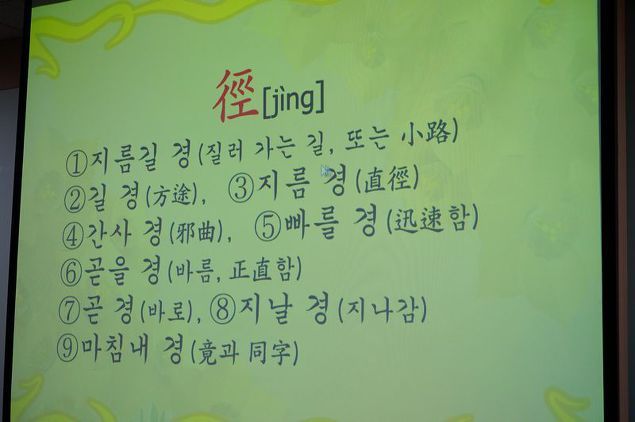 徑[jìng]
①지름길 경(질러 가는 길, 또는 小路)
②길 경(方途), ③지름 경(直徑)
④간사 경(邪曲), ⑤빠를 경(迅速함)
⑥곧을 경(바름, 正直함)
⑦곧 경(바로), ⑧지날 경(지나감)
⑨마침내 경(竟과 同字)